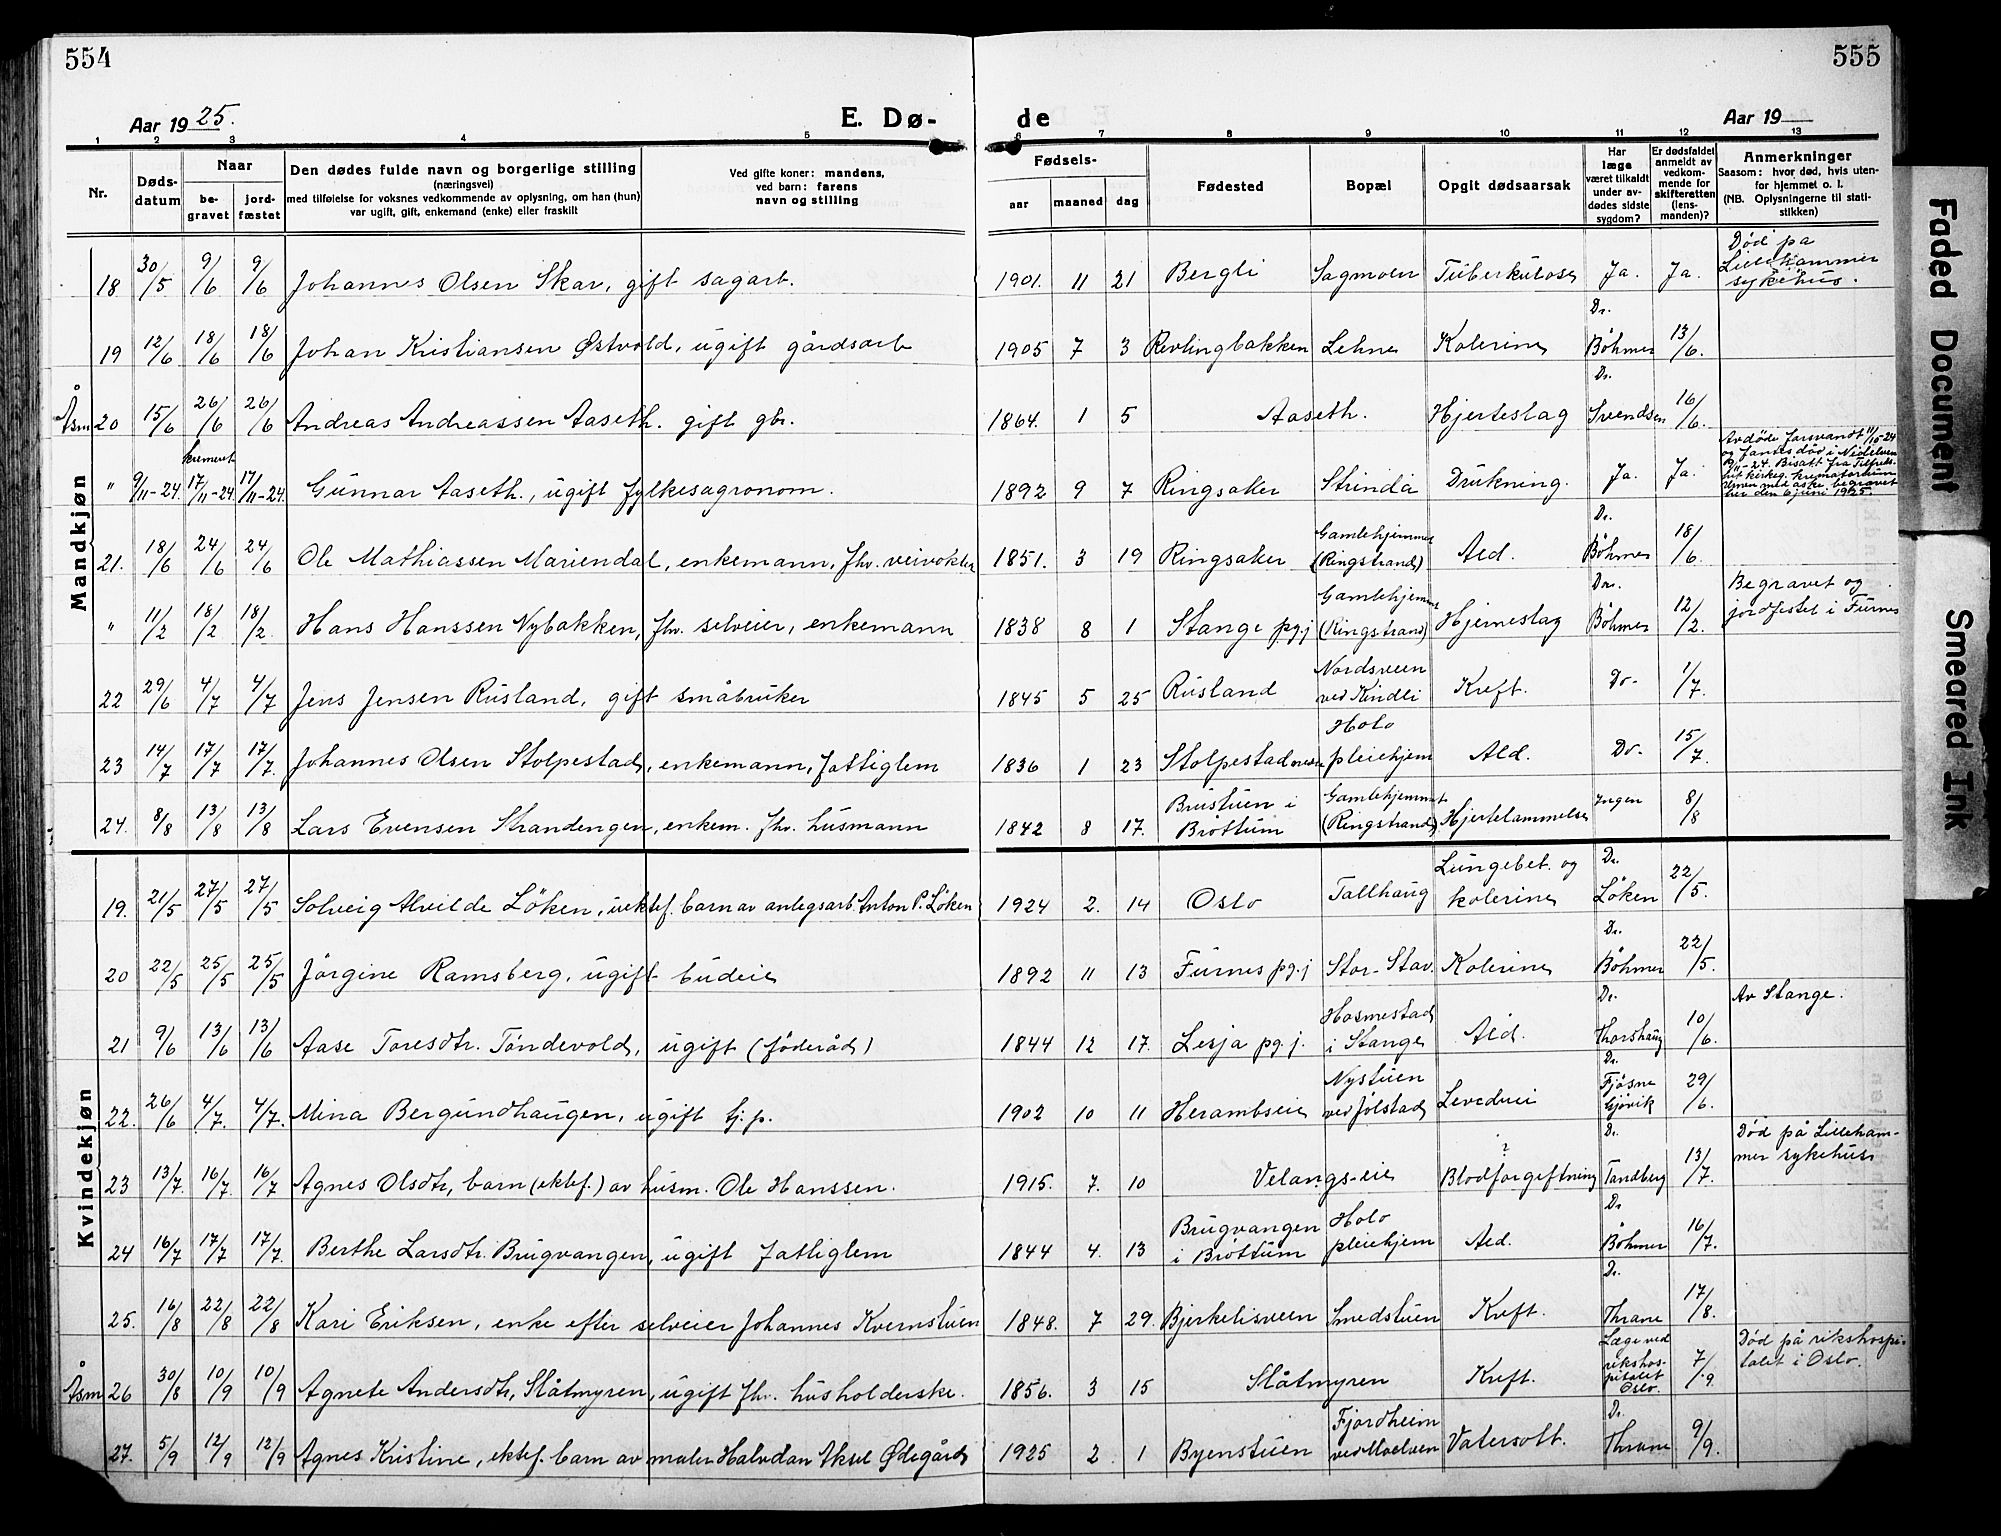 554
555
Aar 1925.
E. Dø-
de
Aar 19
1 2 3 4 5 6 7 8 9 10 11 12 13
Nr.
Døds-
datum
Naar
be-
gravet
jord-
fæstet
Den dødes fulde navn og borgerlige stilling
(næringsvei)
med tilføielse for voksnes vedkommende av oplysning, om han (hun)
var ugift, gift, enkemand (enke) eller fraskilt
Ved gifte koner: mandens,
ved barn: farens
navn og stilling
Fødsels-
aar maaned dag
Fødested
Bopæl
Opgit dødsaarsak
Har
læge
været tilkaldt
under av-
dødes sidste
sygdom?
Er dødsfaldet
anmeldt av
vedkom-
mende for
skifteretten
(lens-
manden)?
Anmerkninger
Saasom: hvor død, hvis uten-
for hjemmet o. l.
(NB. Oplysningerne til stati-
stikken)
Mandkjøn
18 30/5 9/6 9/6 Johannes Olsen Skar, gift sagarb. 1901. 11 21 Bergli Sagmoen Tuberkulose Ja. Ja. Død på Lillehammer sykehus.
19 12/6 18/6 18/6 Johan Kristiansen Østvold, ugift gårdsarb 1905 7 3 Revlingbakken Lehne Kolerine Dr. Böhmer 13/6.
Åsm 20 15/6 26/6 26/6 Andreas Andreassen Aaseth. gift gbr. 1864. 1 5 Aaseth. Hjerteslag Dr. Svendsen 16/6.
" 9/11-24. kremert 17/11-24. 17/11-24. Gunnar Aaseth., ugift fylkesagronom. 1892 9 7 Ringsaker Strinda Drukning. Ja. Ja. Avdøde forsvandt 11/10-24 og fantes död i Nidelven 9/11-24. Bisatt fra Tilfredshet kirkeg. krematorium Urnen med aske begravet her den 6 juni 1925.
21. 18/6 24/6 24/6 Ole Mathiassen Mariendal, enkemann, fhv. veivokter 1851. 3 19 Ringsaker Gamlehjemmet (Ringstrand) Ald. Dr. Böhmer 18/6.
" 11/2 18/2 18/2. Hans Hanssen Nybakken, fhv. selveier, enkemann 1838 8 1 Stange pg.j Gamlehjemmet (Ringstrand) Hjerneslag Dr. Böhmer 12/2. Begravet og jordfestet i Furnes
22 29/6 4/7 4/7 Jens Jensen Rusland, gift småbruker 1845 5 25 Rusland Nordsveen ved Kindli Kreft. Do- 1/7.
23 14/7 17/7 17/7. Johannes Olsen Stolpestad, enkemann, fattiglem 1836 1 23 Stolpestad nedre Holo pleiehjem Ald. Do- 15/7.
24. 8/8 13/8 13/8 Lars Evensen Strandengen, enkem. fhv. husmann 1842 8 17. Brustuen i Brøttum Gamlehjemmet (Ringstrand) Hjertelammelse Ingen 8/8
Kvindekjøn
19. 21/5 27/5 27/5 Solveig Alvilde Löken, uektef. barn av anlegsarb. Anton P. Löken 1924 2. 14 Oslo Tallhaug Lungebet. og kolerine Dr. Löken 22/5.
20 22/5 25/5 25/5 Jörgine Ramsberg, ugift budeie 1892 11 13 Furnes pg.j Stor-Stav. Kolerine Dr. Böhmer 22/5.
21 9/6 13/6 13/6 Aase Toresdtr. Töndevold, ugift (föderåd) 1844 12 17. Lesja pg.j. Hosmestad i Stange Ald. Dr. Thorshaug 10/6. Av Stange.
22. 26/6 4/7. 4/7. Mina Bergundhaugen, ugift tj.p. 1902 10 11 Herambseie Nystuen ved Jølstad Levedvei Dr. Fjösne Gjövik 29/6.
23 13/7. 16/7. 16/7 Agnes Olsdtr, barn (ektef.) av husm. Ole Hanssen. 1915. 7. 10 Velangs-eie ? Blodforgiftning Dr. Tandberg 13/7. Død på Lillehammer sykehus
24 16/7 17/7 17/7. Berthe Larsdtr. Brugvangen, ugift fattiglem 1844 4. 13 Brugvangen i Brøttum Holo pleiehjem Ald. Dr Böhmer 16/7.
25. 16/8 22/8 22/8 Kari Eriksen, enke efter selveier Johannes Kvernstuen 1848. 7 29. Bjerkelisveen Smedstuen Kreft. Dr. Thrane 17/8.
Åsm 26 30/8 10/9 10/9 Agnete Andersdtr, Slåtmyren, ugift fhv. husholderske. 1856. 3 15 Slåtmyren Kreft. Læge ved rikshospitalet Oslo. 7/9. Død på rikshospitalet i Oslo.
27. 5/9 12/9 12/9 Agnes Kristine, ektef. barn av maler Halvdan Aksel Ødegård 1925 2 1 Byenstuen Fjordheim ved Moelven Vatersott. Dr. Thrane 9/9.
Faded Document
Smeared Ink